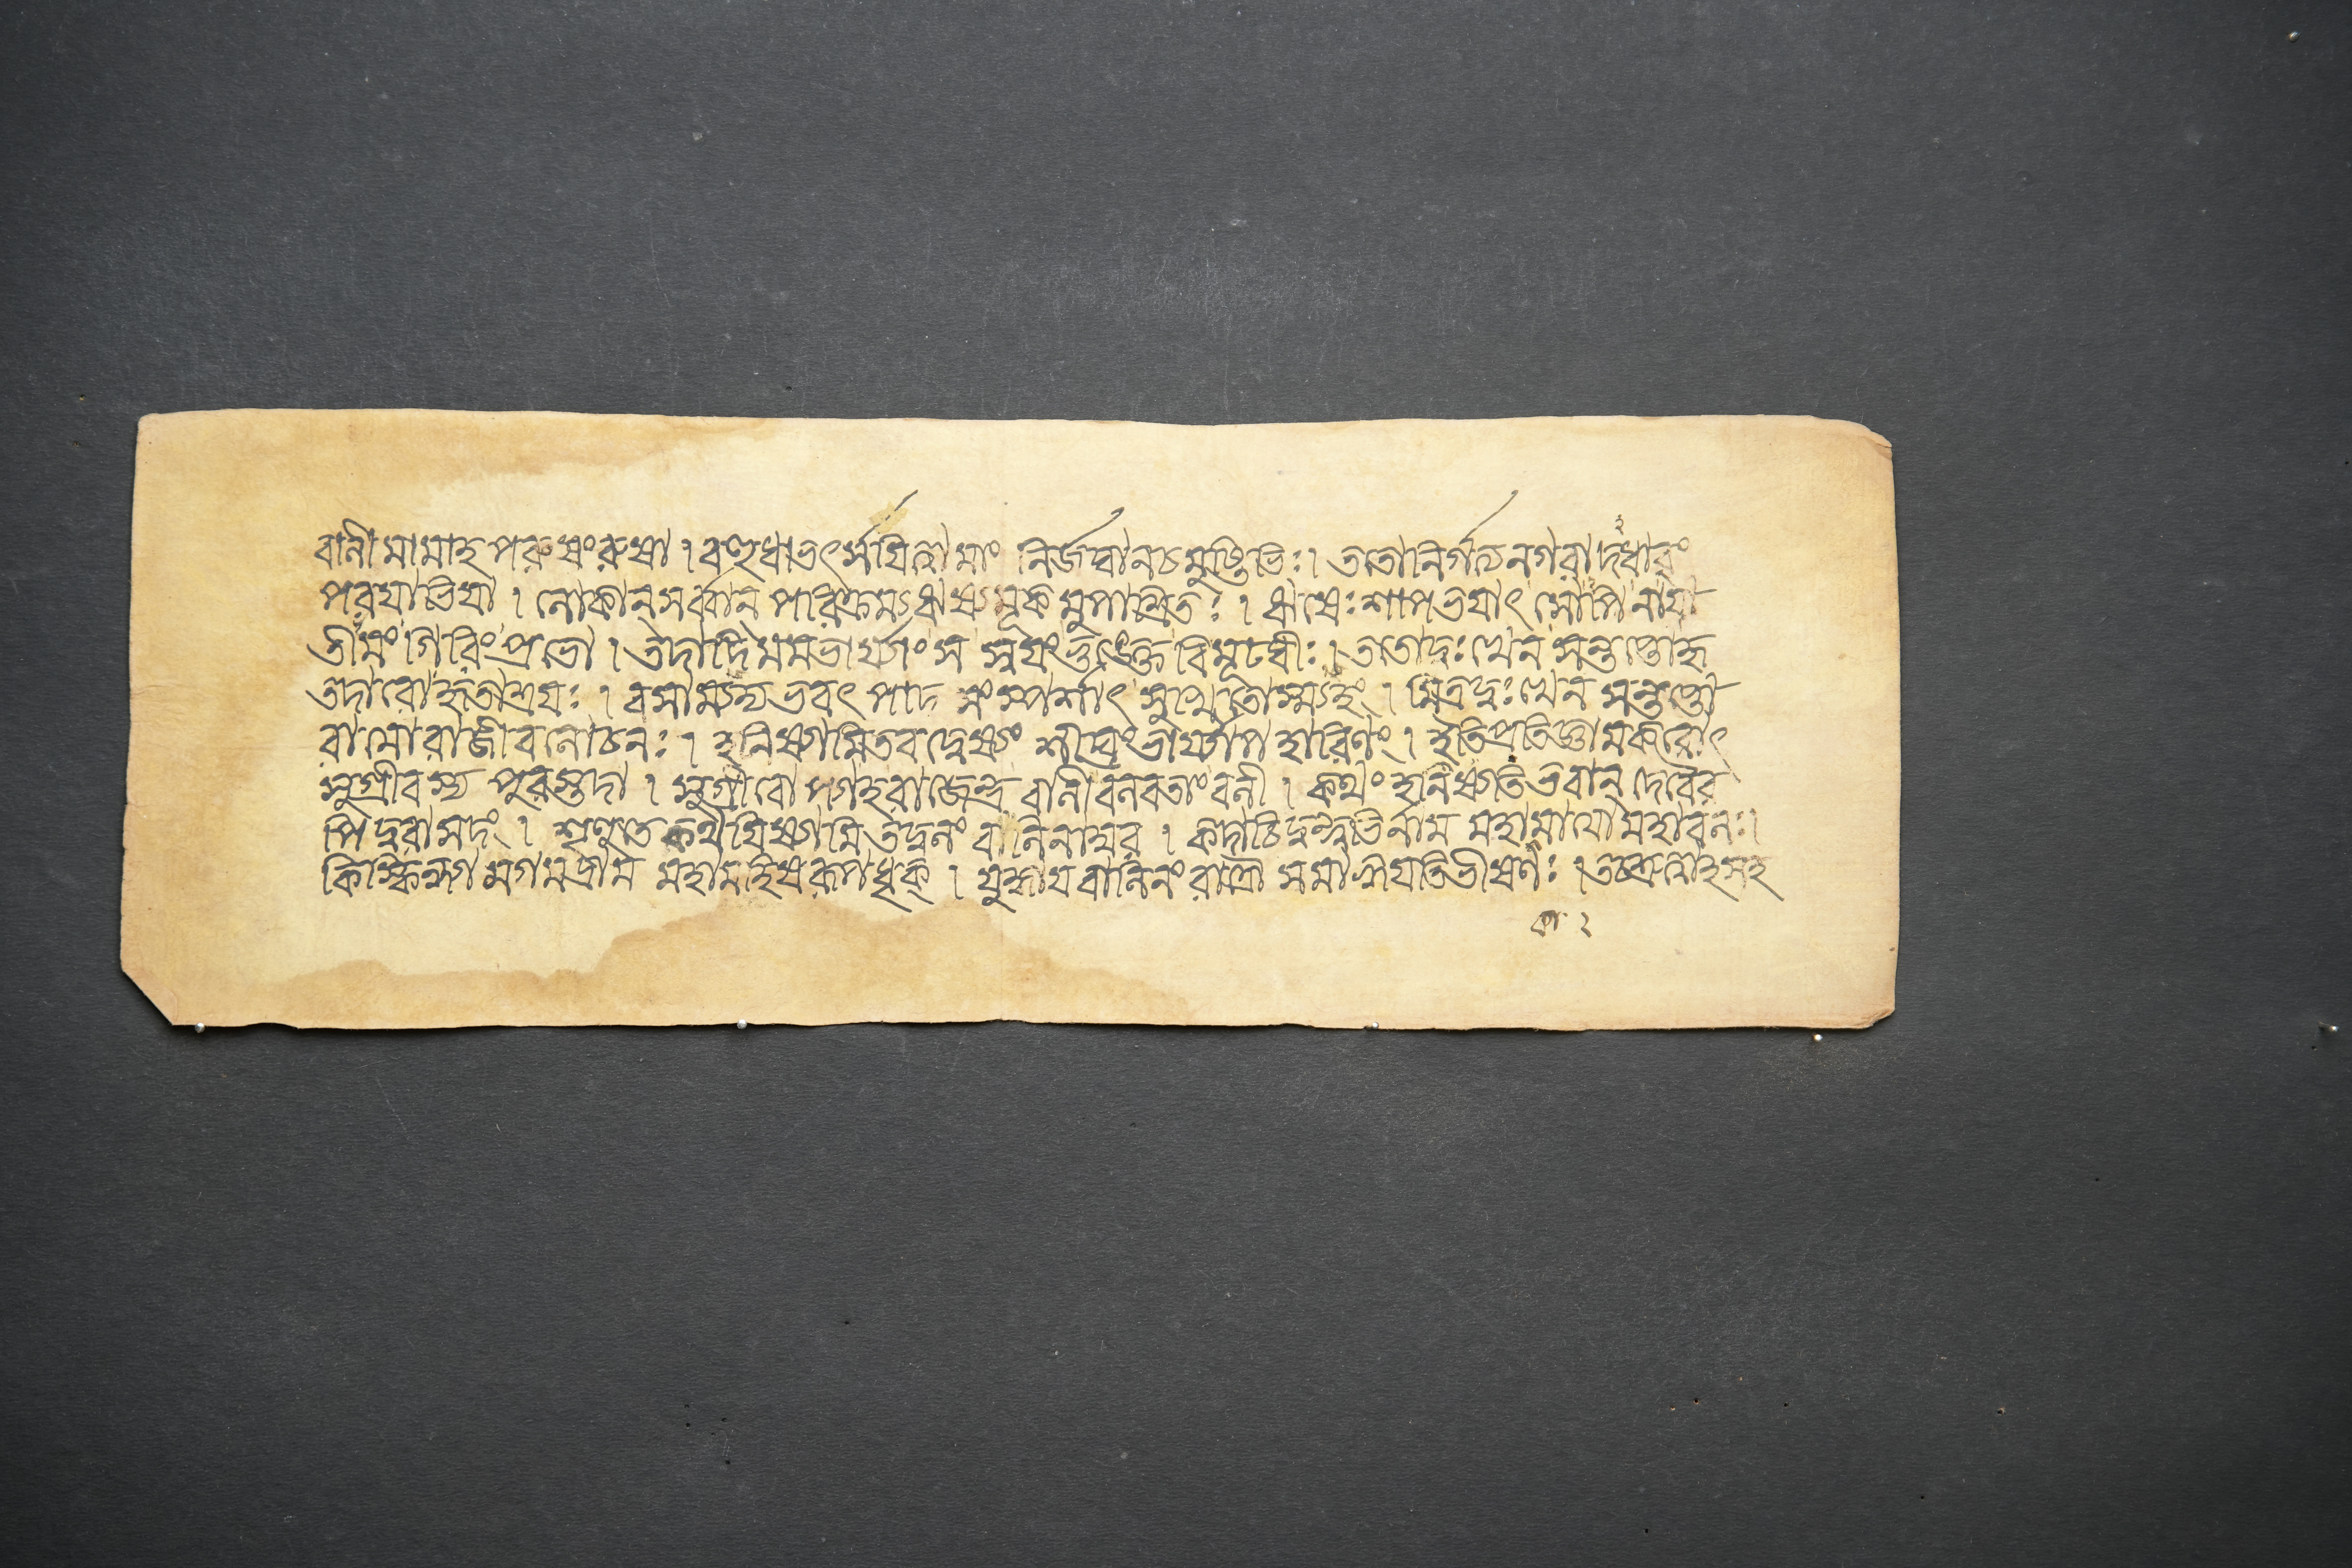 বালী মামাহ পরুষংরুষা । বহুধা ভর্ৎসয়িত্বা মাং নির্জঘান চ মুষ্টিভিঃ । ততো নির্গত্য নগরাদধাবং
পরয়াভিয়া । লোকান্ সর্ব্বান্ পরিক্রম্য ঋষ্যমূকমুপাশ্রিতঃ । ঋষেঃ শাপভয়াৎ সোপি নায়া
তীমং গিরিং প্রভো । তদাদি মম ভার্য্যাং স স্বয়ং ভুঙ্ক্তে বিমূঢধীঃ । ততোদুঃখেন সন্তপ্তোহৃ
তদারোহৃতাশ্রয়ঃ । বসাম্যদ্য ভবৎ পাদ সংস্পর্শাৎ সুখিতোস্ম্যহং । মিত্রদুঃখেন সন্তপ্তো
রামোরাজীবলোচনঃ । হনিষ্যামিতবদ্বেষ্যং শীঘ্রং ভার্য্যাপহারিণং । ইতিপ্রতিজ্ঞামকরোৎ
সুগ্রীবস্য পুরস্তদা । সুগ্রীবো প্যাহরাজেন্দ্র বালীবলবতাং বলী । কথং হনিষ্যতি ভবান্ দেবৈর
পিদুরাসদং । শৃণুতে কথয়িষ্যামি তদ্বলং বলিনাম্বর । কদাচিদ্দুন্দুভির্নাম মহামায়ো মহাবলঃ ।
কিস্কিন্ধ্যামগমদ্রাম মহামহিষরূপধৃক্ । যুদ্ধায় বালিনং রাত্রৌ সমাহ্বয়তিভীষণঃ । তচ্ছ্রুত্বাহসহ